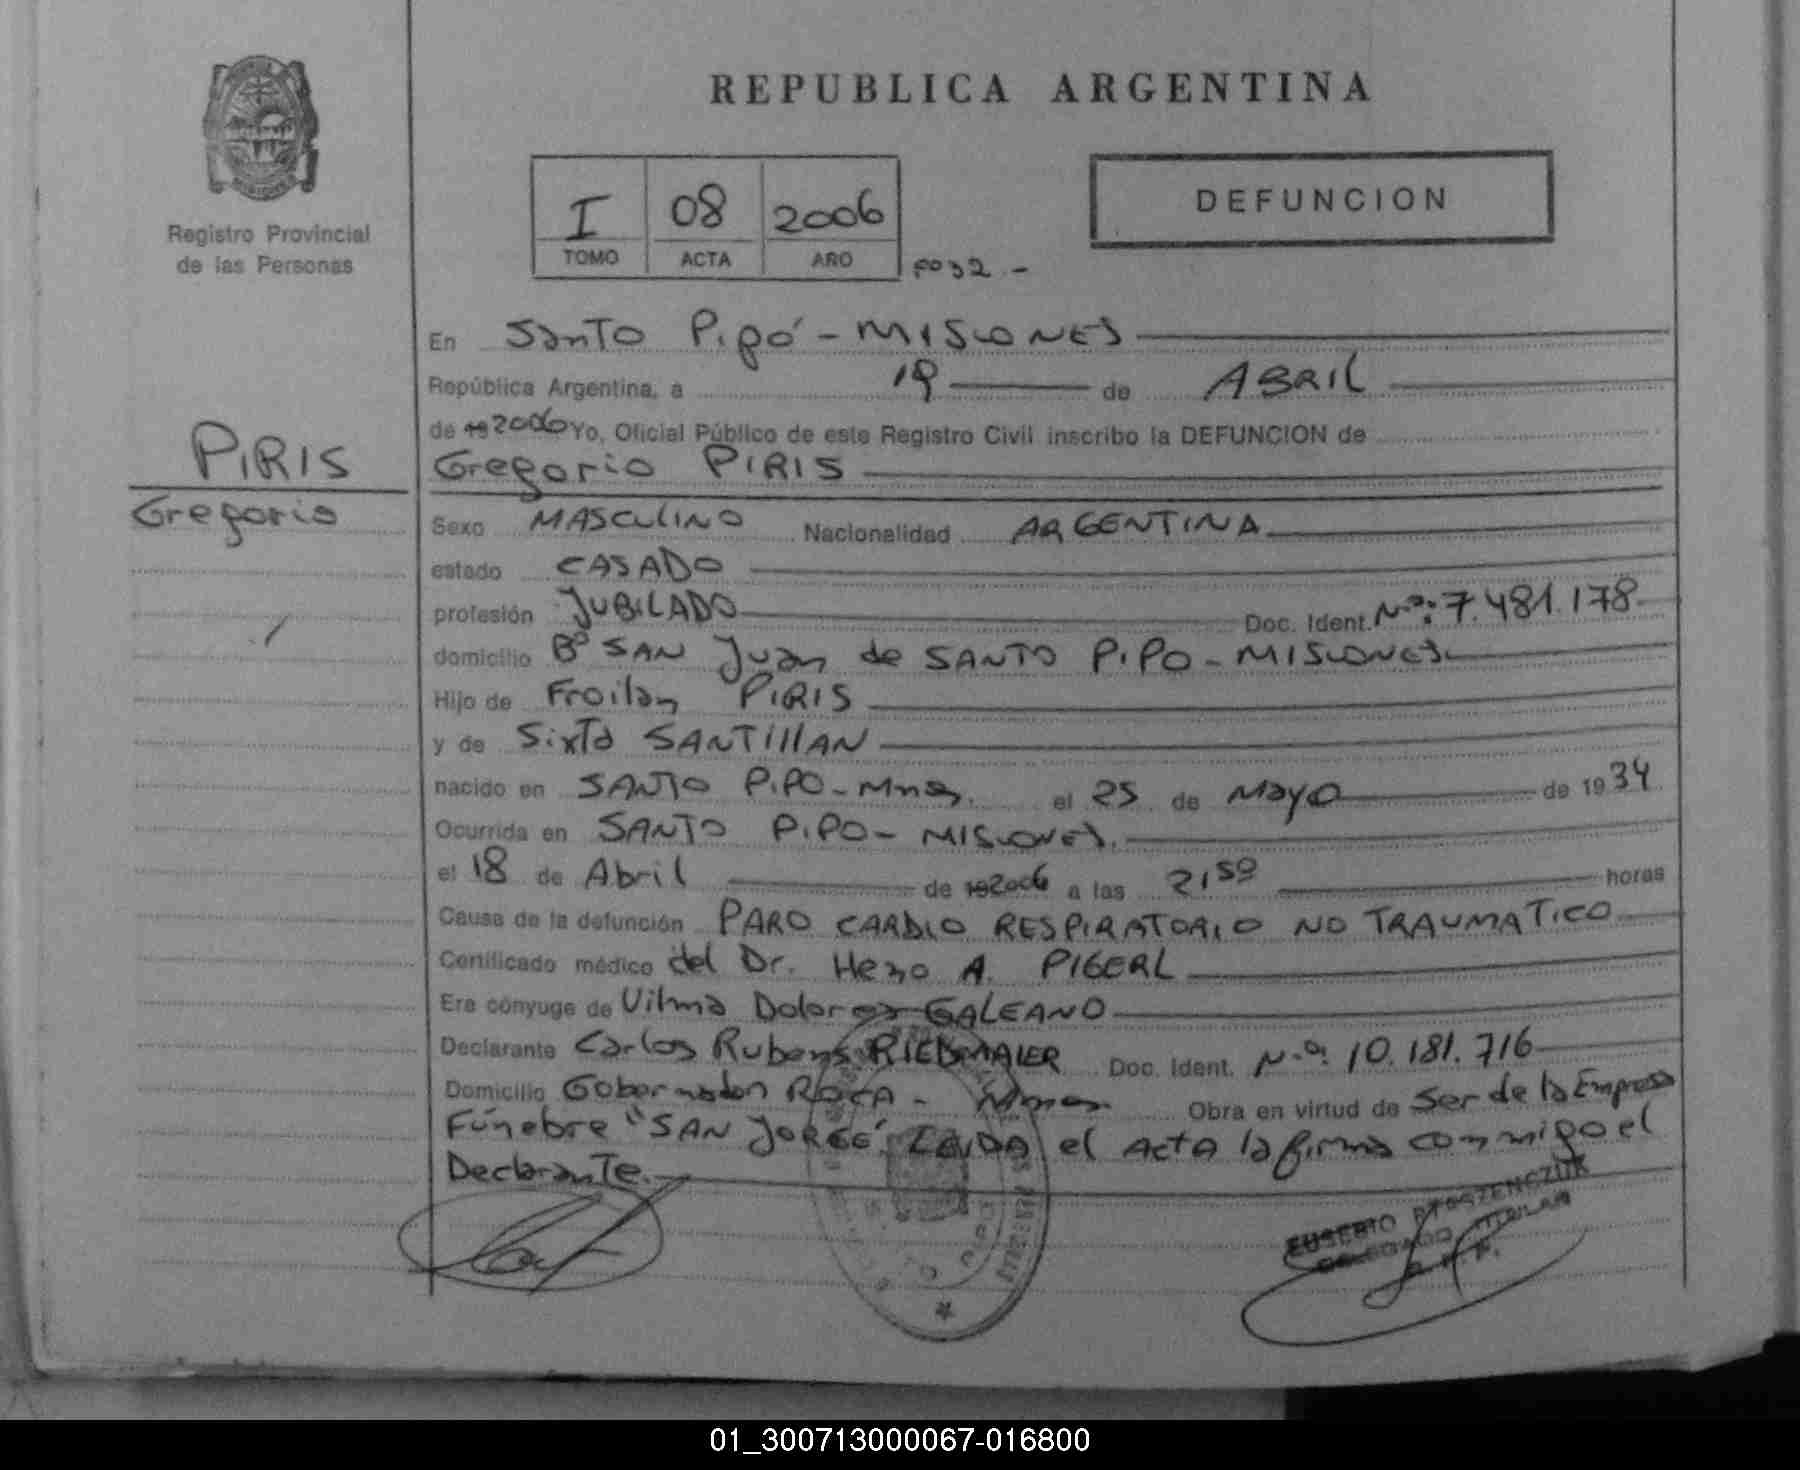 REPUBLICA ARGENTINA
Registro Provincial
de las Personas
I 08 2006
TOMO ACTA AÑO
Fo 32 -
DEFUNCION
En Santo Pipó - MISIONES
República Argentina, a 19 de ABRIL
de 19 2006 Yo, Oficial Público de este Registro Civil inscribo la DEFUNCION de
PIRIS
Gregorio PIRIS
Gregorio
Sexo MASCULINO Nacionalidad ARGENTINA
estado CASADO
profesión JUBILADO Doc. Ident. Nº: 7.481.178
domicilio Bº SAN Juan de SANTO PIPO - MISIONES
Hijo de Froilan PIRIS
y de Sixta SANTILLAN
nacido en SANTO PIPO - Mnes. el 25 de Mayo de 1934
Ocurrida en SANTO PIPO - MISIONES.
el 18 de Abril de 19 2006 a las 21 50 horas
Causa de la defunción PARO CARDIO RESPIRATORIO NO TRAUMATICO
Certificado médico del Dr. A. PIGERL
Era cónyuge de Vilma Dolores GALEANO
Declarante Carlos Rubens RIEBMAIER Doc. Ident. Nº: 10.181.716
Domicilio Gobernador ROCA - Mnes Obra en virtud de Ser de la Empresa
Fúnebre "SAN JORGE". LEIDA el ActA la firma conmigo el
Declarante.
EUSEBIO
DELEGADO TITULAR
R. P. P.
01_300713000067-016800